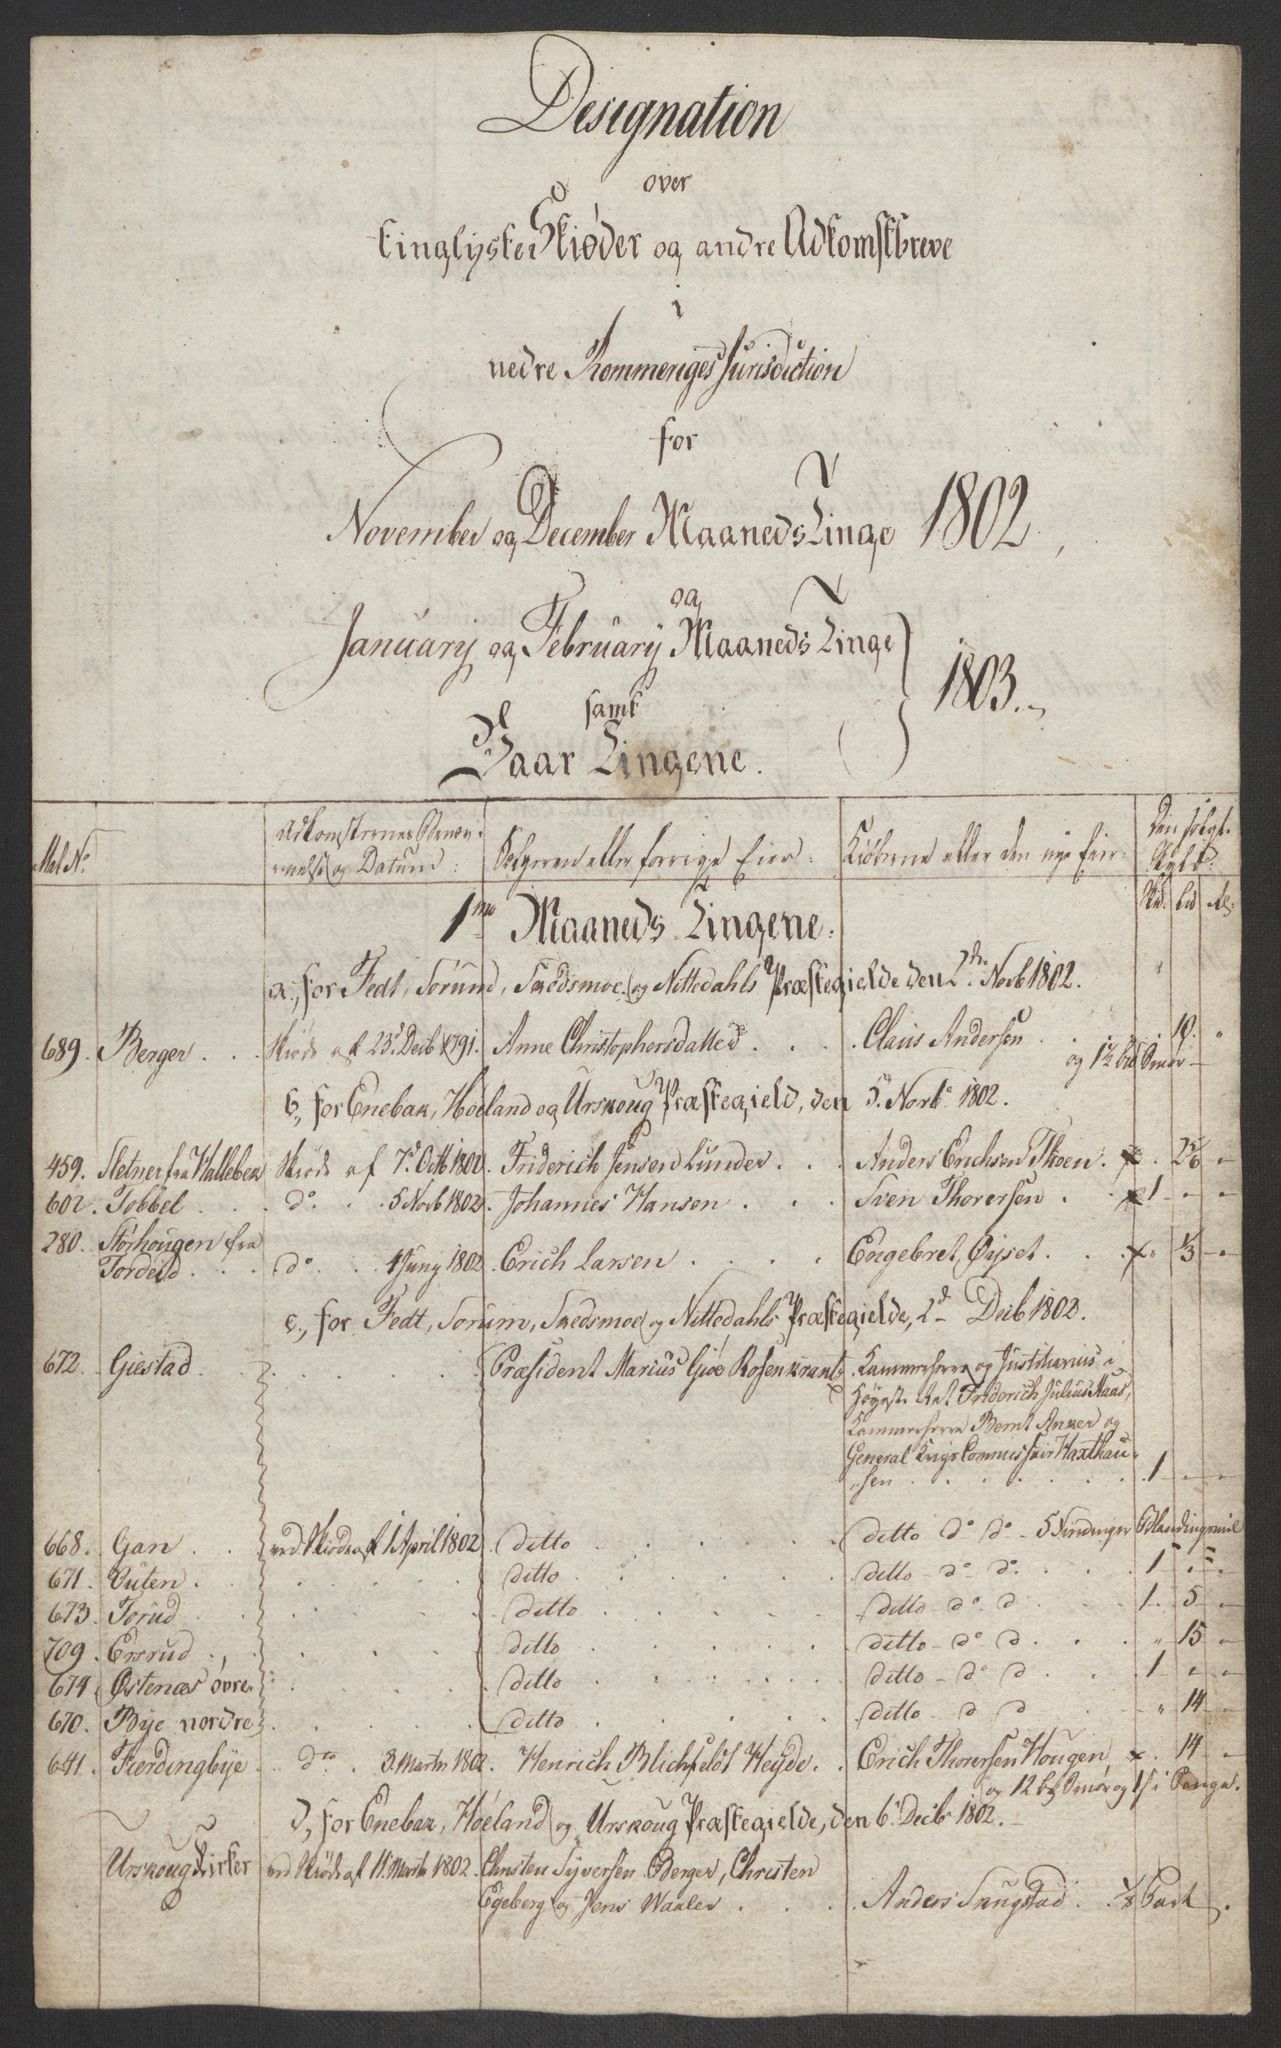 Designation
over
tinglyste Skiøder og andre Adkomstbreve
i
nedre Rommeriges Jurisdiction
for
November og December Maaneds Tinge 1802,
og
January og February Maaneds Tinge
1803.
samt
Vaar Tingene.
Mat. No. Adkomsternes Benæv- Sælgeren eller forrige Eier. Kiøberne eller den nye Eier. Den solgte
nelse og Datum. Skyld.
Skd. Ld
1mo Maaneds Tingene.
a, for Fedt, Sørum, Skedsmoe og Nittedahls Præstegielde den 2den Novb 1802.
689. Berger . . . Skiøde af 23d Decb 1791. Anne Christophersdatter . . . Claus Andersen . . 10.
og 1½ bd Smør
b, for Enebak, Høeland og Urskoug Præstegield, den 5. Novb. 1802.
459. Sletner fra Halleben Skiøde af 7d Octb 1802. Friderich Jensen Lunder . . . Anders Erichsen Thoen . x.
602. Tobbel . . . do . . 5 Novb 1802. Johannes Hansen . . . Sven Thorersen . . x 1 - -
280. Storhougen fra
Tordeid . . . do . . 4 Juny 1802 Erich Larsen . . . . Engebret Øyset . . x " 1/3 -
c, for Fedt, Sørum, Skedsmoe og Nittedahls Præstegielde, 2d Decb 1802.
672. Giestad . . . . Præsident Marius Giøe Rosenkrantz Kammerherre og Justitiarius i
Høyeste Ret Friderich Julius Kaas,
Kammerherre Bernt Anker og
General Krigs Commissair Haxthau-
sen . . . . . . 1 - -
668. Gan . . ved Skiøde af 1 April 1802 ditto . . . . ditto do do - 5 Blandingmiel
671. . . . ditto . . . . ditto - do do . . . 1 " -
673. Torud . . . ditto . . . . ditto - do d . . . 1 . 5 -
709. Ersrud . . . ditto . . . . ditto - do d . . . " 15 -
674. Østenæs øvre . . . ditto . . . . ditto - do d . . . 1 - -
670. Bye nordre . . . ditto . . . . ditto - d d . . . " 14 -
641. Fierdingbye . . do . . 3. Martz 1802. Henrich Blichfeldt Heyde . . Erich Thorersen Hougen x . 14 -
og 12 Smør og 1 ß i Penge.
d, for Enebak, Høeland og Urskoug Præstegielde, den 6. Decb. 1802.
Urskoug Kirker ved Skiøde af 11. Martz 1802. Christen Syversen Berger, Christen
Egeberg og Jens Waaler . . . Anders Skugstad . . 1/8 Part .